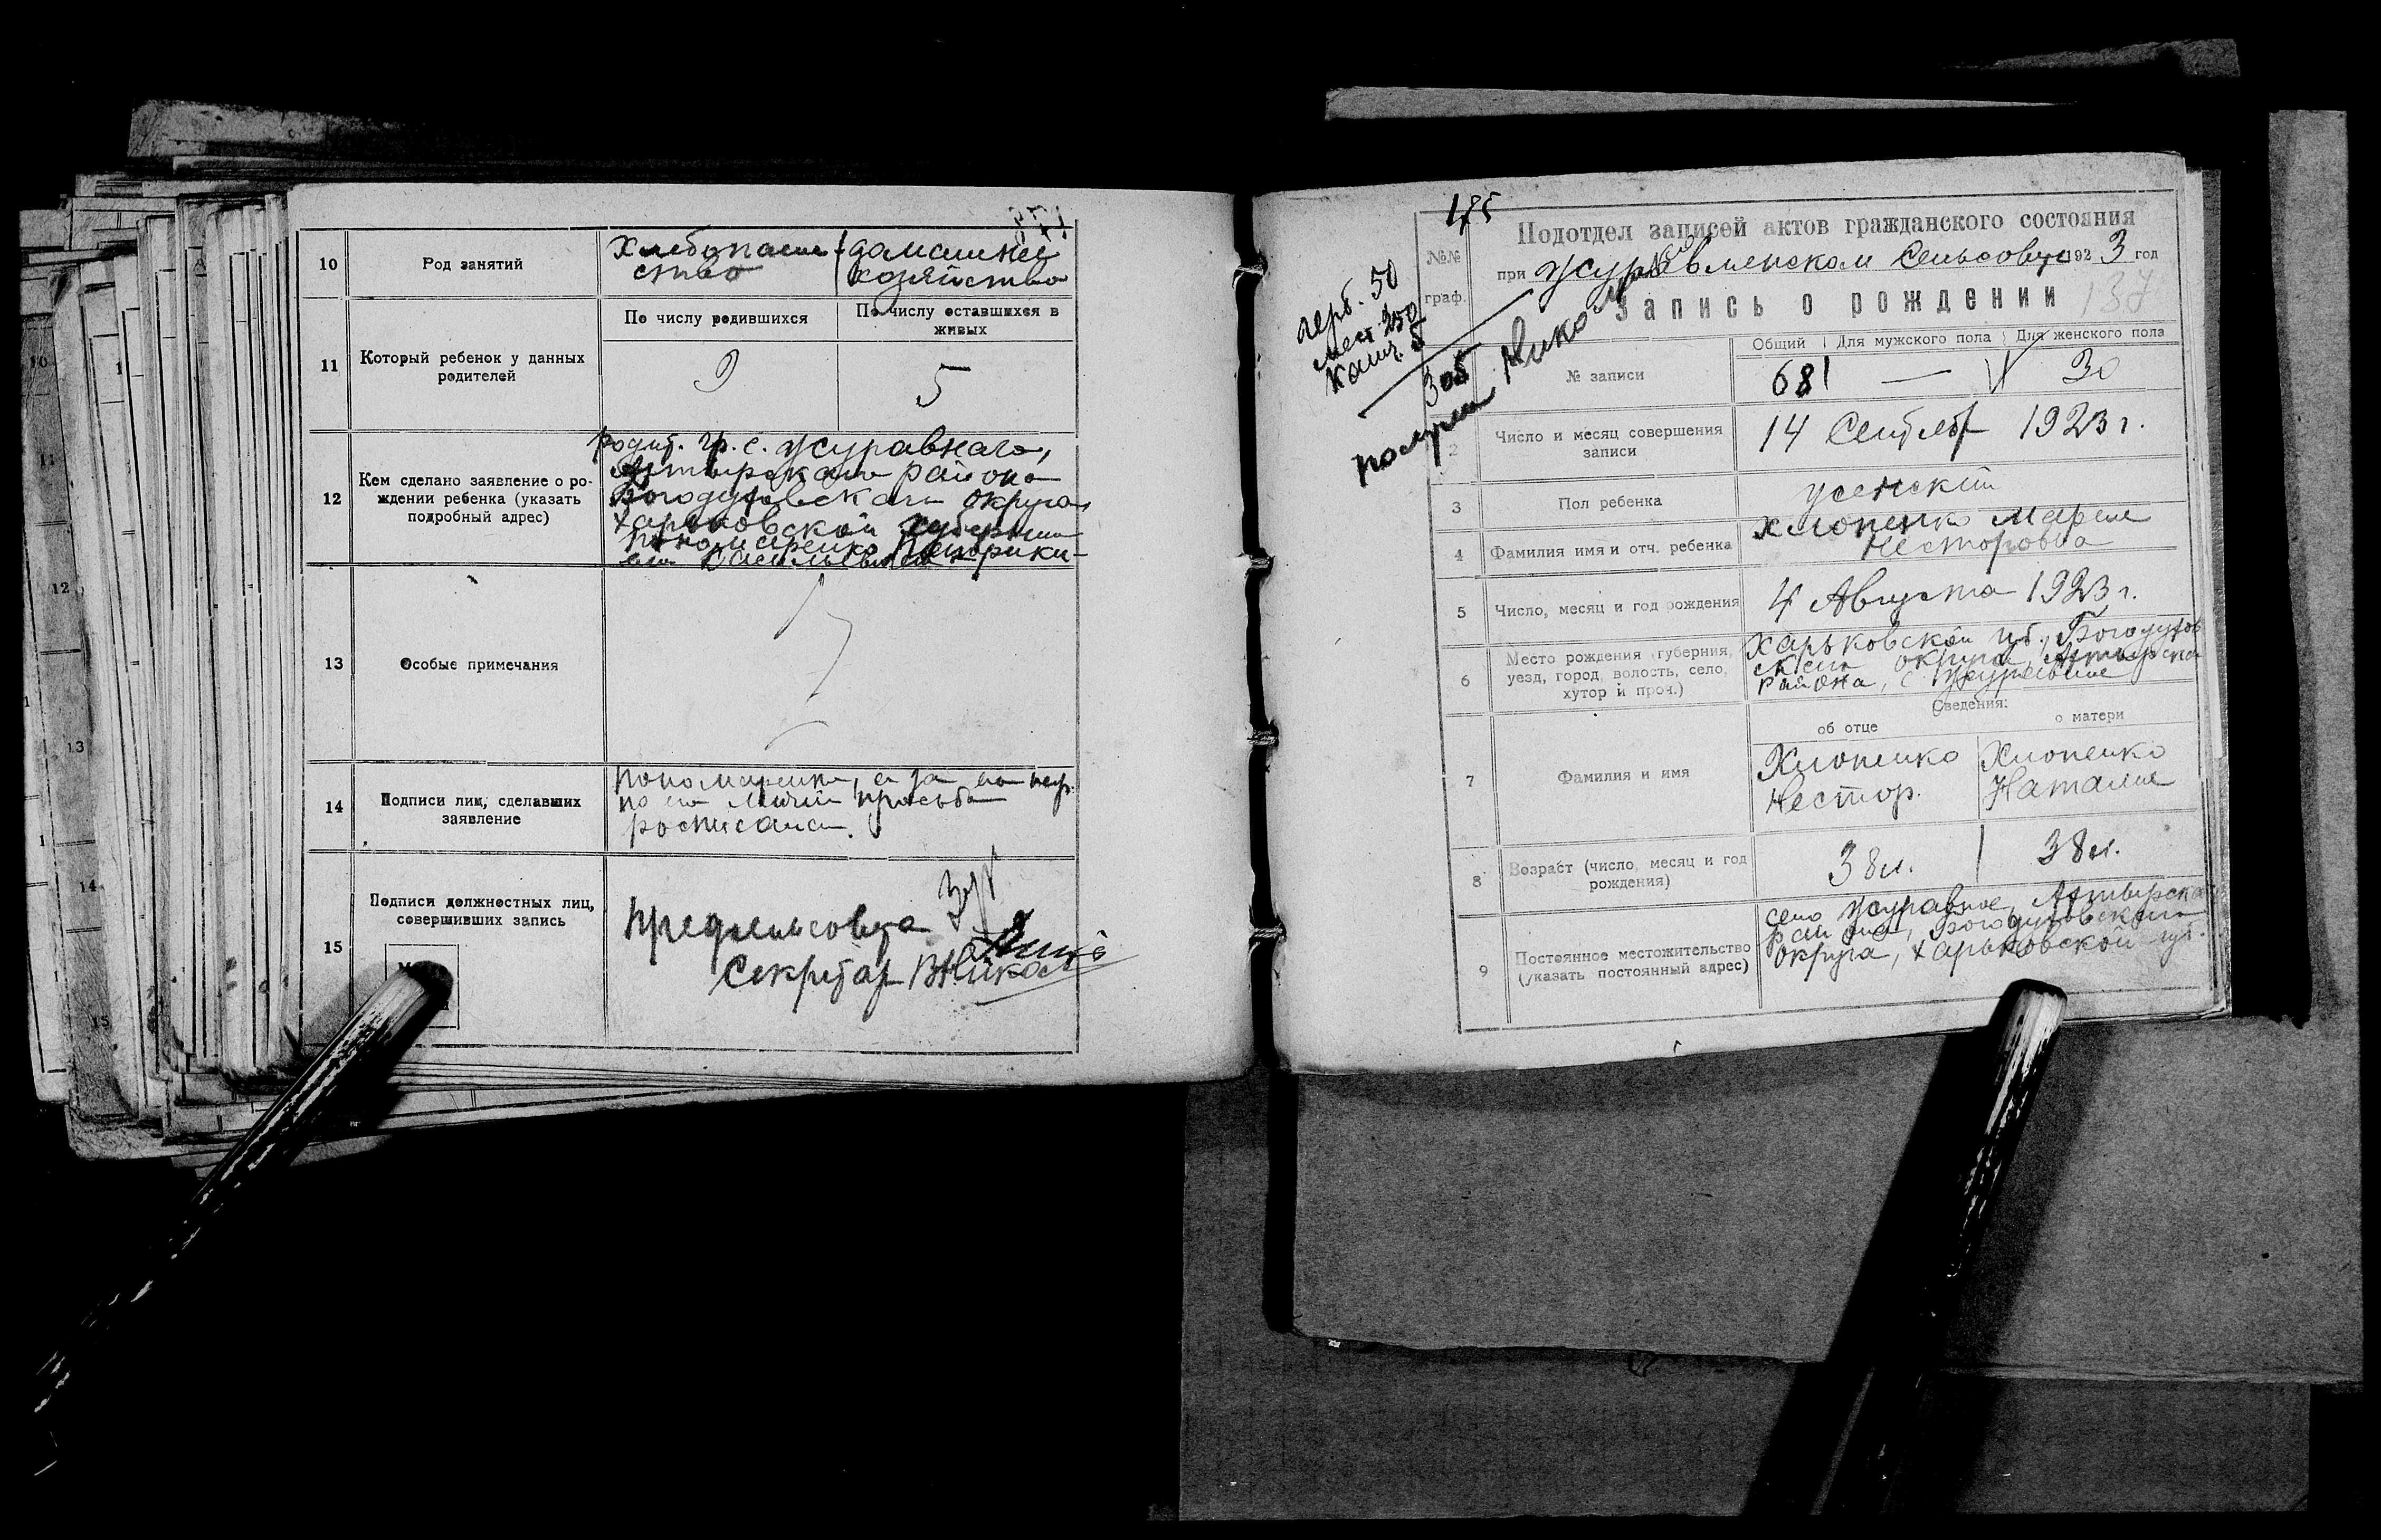 10
Род занятий
Хлебопаше-
ство
домашнее
хозяйство
11
Который ребенок у данных
родителей
По числу родившихся
По числу оставшихся в
живых
9
5
12
Кем сделано заявление о ро-
ждении ребенка (указать
подробный адрес)
родит. гр. с. Журавнаго,
Ахтырскаго района
Богодуховскаго округа
Харьковской губернии
Пономаренко
Васильевна
13
Особые примечания
14
Подписи лиц, сделавших
заявление
Пономаренко, а за
по его личной просьбе
росписался.
15
Подписи должностных лиц,
совершивших запись
Предсельсовета
Секретар
13
12
14
13
15
175
№№
граф.
Подотдел записей актов гражданского состояния
при Журавленском Сельсовете 1923 год
Запись о рождении
137
герб. 50
мест. 250
канц. 5
305
получил
№ записи
Общий
Для мужского пола
Для женского пола
681
—
30
2
Число и месяц совершения
записи
14 Сентябр 1923 г.
3
Пол ребенка
женский
4
Фамилия имя и отч. ребенка
Хлопенко Мария
Несторовна
5
Число, месяц и год рождения
4 Августа 1923 г.
6
Место рождения (губерния,
уезд, город, волость, село,
хутор и проч.)
Харьковской губ., Богодухов
скаго округа, Ахтырска
района, с. Журавное
Сведения:
об отце
о матери
7
Фамилия и имя
Хлопенко
Нестор.
Хлопенко
Наталия
8
Возраст (число, месяц и год
рождения)
38 л.
38 л.
9
Постоянное местожительство
(указать постоянный адрес)
село Журавное, Ахтырска
района, Богодуховскаго
округа, Харьковской губ.